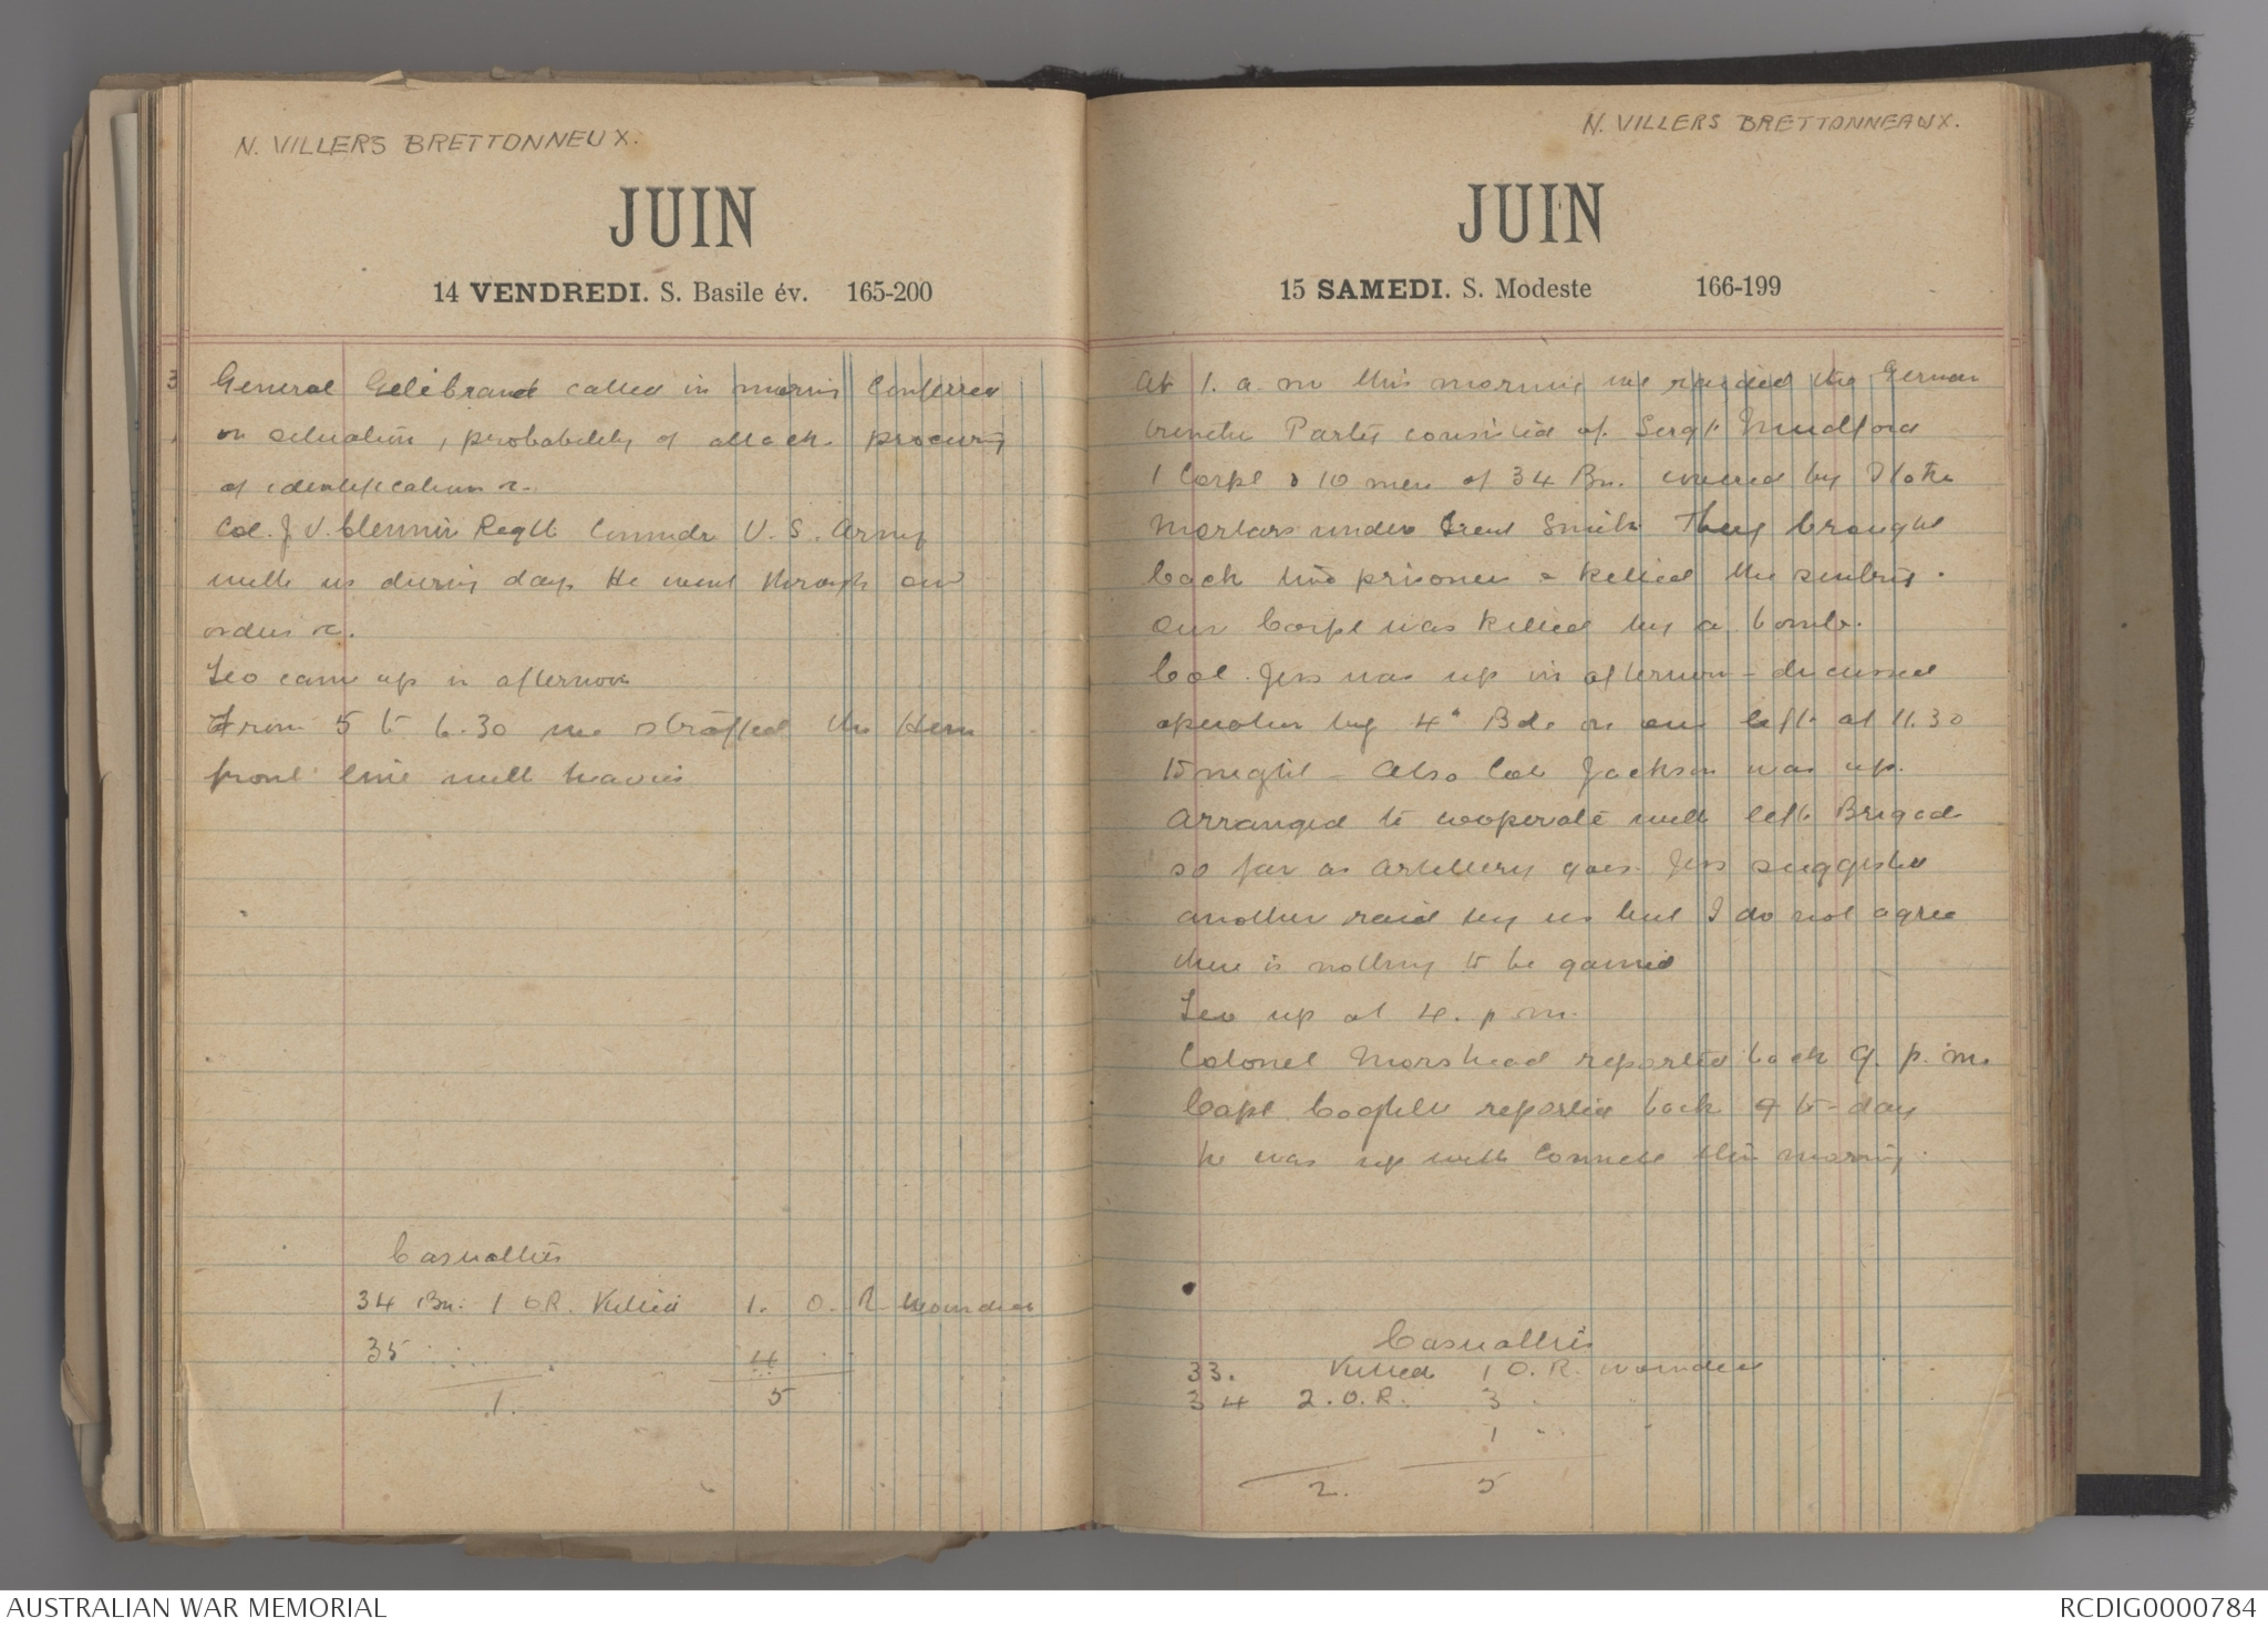 N. VILLERS BRETTONNEUX.
JUIN
14 VENDREDI. S. Basile év. 165-200
3 General Gelibrand called in morning Conferred
on situation, probability of attack procuring
of identification &.
Col. J V. Clennin Regtl Commdr U. S. Army
with us during day. He went through our
orders &c.
Leo came up in afternoon
From 5 to 6.30 we straffed the Hun
front line with heavies
Casualties
34 Bn. 1 OR. Killed 1. O. R wounded
35 4
1. 5
N. VILLERS BRETTONNEAUX.
JUIN
15 SAMEDI. S. Modeste 166-199
At 1. a. m this morning we raided the German
trenches Party consisted of Sergt Mudford
1 Corpl & 10 men of 34 Bn. covered by Stokes
Mortars under Lieut Smith They brought
back two prisoners & killed the sentry.
Our Corpl was killed by a bomb.
Col. Jess was up in afternoon - discussed
operation by 4th Bde on our left at 11.30
to night - Also Col Jackson was up.
Arranged to cooperate with left Brigade
so far as artillery goes. Jess suggested
another raid by us but I do not agree
there is nothing to be gained
Leo up at 4. p m.
Colonel Morshead reported back 9. p. m.
Capt. reported back to-day
he was up with Connell this morning.
Casualties
33. Killed 1 O. R. wounded
34 2. O. R. 3
1
2. 5
AUSTRALIAN WAR MEMORIAL
RCDIG0000784